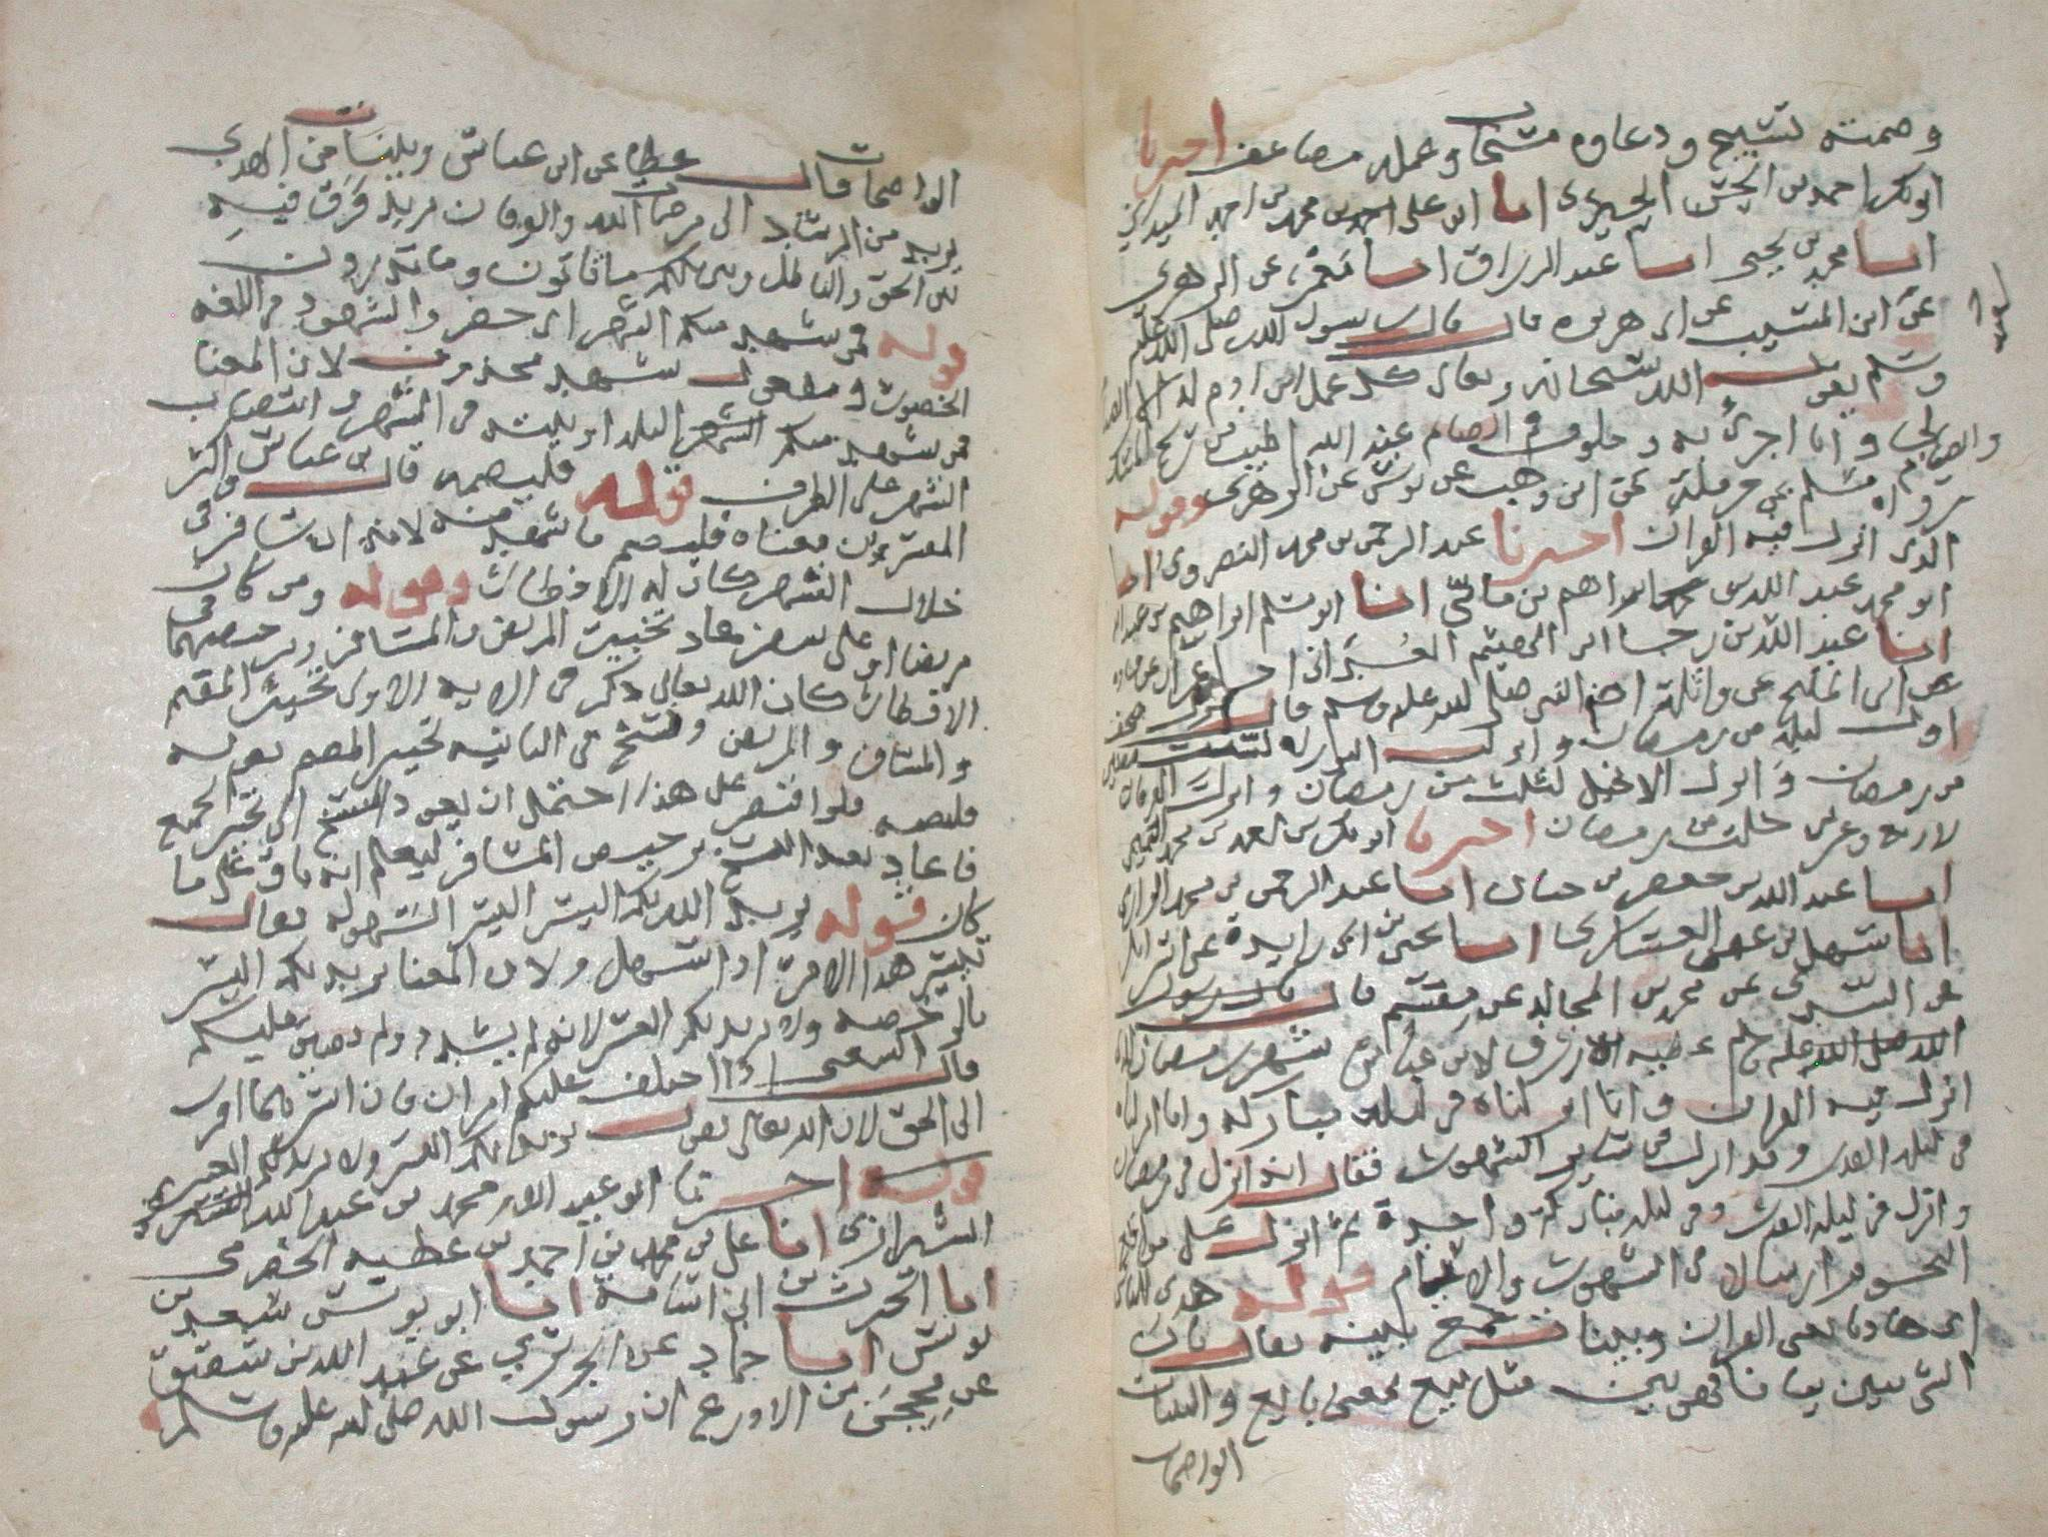 وصمته تسبيح ودعاوه مستجاب وعمله مضاعف اخبرنا
ابو بكر احمد بن الحسن الحيري انا ابو على محمد بن احمد الميداني
انبا محمد بن يحيى انبا عبد الرزاق انبا معمر عن الزهرى
عن ابن المسيب عن ابى هريره قال قال رسول الله صلى الله عليه
وسلم يقول الله سبحانه وتعالى كل عمل ابن ادم له الا الصيام
والصيام لى وانا اجزى به وخلوف فم الصايم عند الله اطيب من ريح المسك
رواه مسلم عن حرملة عن ابن وهب عن يونس عن الزهرى وقوله
الذى انزل فيه القران اخبرنا عبد الرحمن بن محمد النصروى انا
ابو محمد عبد الله بن ابراهيم بن ماسى انا ابو مسلم ابراهيم بن عبد الله
انا عبد الله بن رجا ابو الهيثم انا عمران عن قتاده
عن ابى المليح عن واثلة ان النبى صلى الله عليه وسلم قال نزلت صحف
اول ليلة من رمضان وانزلت التوراه لست مضين
من رمضان وانزل الانجيل لثلث من رمضان وانزل القران
لاربع وعشرين خلت من رمضان اخبرنا ابو بكر بن محمد التميمى
انبا عبد الله بن محمد بن جعفر بن حيان انبا عبد الرحمن بن محمد الرازى
انا سهل بن عثمن العسكرى انبا يحيى بن ابى زايدة عن اسرائيل
عن السدى عن محمد بن المجالد عن مقسم قال
عطيه الازرق لابن عباس شهر رمضان الذى
انزل فيه القران وانا انزلناه فى ليلة مباركه وانا انزلناه
فى ليله القدر وقد انزل فى ساير الشهور فقال انه انزل فى رمضان
وانزل فى ليله القدر وفى ليله مباركة واحدة ثم انزل على مواقع
النجوم ارسالا فى الشهور والايام قوله هدى للناس
اى هاديا يعنى القران وبينات جمع بينه يقال بان
الشى يبين بيانا فهو بين مثل بيع بمعنى بايع والبينات
الواضحات
الواضحات قال عطا عن ابن عباس وبينات من الهدى
يريد من الرشاد الى مرضات الله والفرقان يريد فرق فيه
بين الحق والباطل وبين لكم ما تاتون وما تذرون
قوله فمن شهد منكم الشهر اى حضر والشهود فى اللغه
الحضور ومفعول شهد محذوف لان المعنا
فمن شهد منكم الشهر البلد او بيته فى الشهر وانتصب
الشهر على الظرف قوله فليصمه قال بن عباس واكثر
المفسرين معناه فليصم ما شهد منه لانه ان سافر فى
خلال الشهر كان له الافطار وقوله ومن كان
مريضا او على سفر معاد تخيير المريض والمسافر وترخيصهما فى
الافطار كان الله تعالى ذكر فى الايه الاولى تخيير المقيم
والمسافر والمريض ونسخ فى الثانيه تخيير المقيم بقوله
فليصمه فلو اقتصر على هذا احتمل ان يعود النسخ الى تخيير الجميع
فاعاد بعد النسخ ترخيص المسافر ليعلم انه باق على ما
كان قوله يريد الله بكم اليسر اليسر السهوله يقال
تيسر هذا الامر اذا تسهل ولان المعنا يريد بكم اليسر
بالرخصه ولا يريد بكم العسر لانه لم يشدد ولم يضيق عليكم
قال الشعبى اذا اختلف عليكم امران فان ايسرهما اقرب
الى الحق لان الله تعالى يقول يريد بكم اليسر ولا يريد بكم العسر
قوله اخبرنا ابو عبد الله محمد بن عبد الله
الشيرازى انا على بن محمد بن احمد بن عطيه الحضرمى
انا الحرث بن ابى اسامة انا ابو يونس سعيد بن
يونس انبا حماد عن الجريرى عن عبد الله بن شقيق
عن محجن بن الادرع ان رسول الله صلى الله عليه وسلم